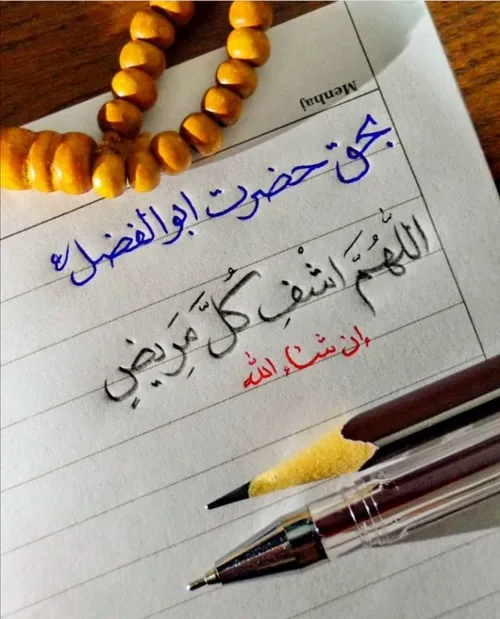 Menhaj
بحق حضرت ابوالفضل ع
اللَّهُمَّ اشْفِ كُلَّ مَرِيضٍ
إن شاء الله